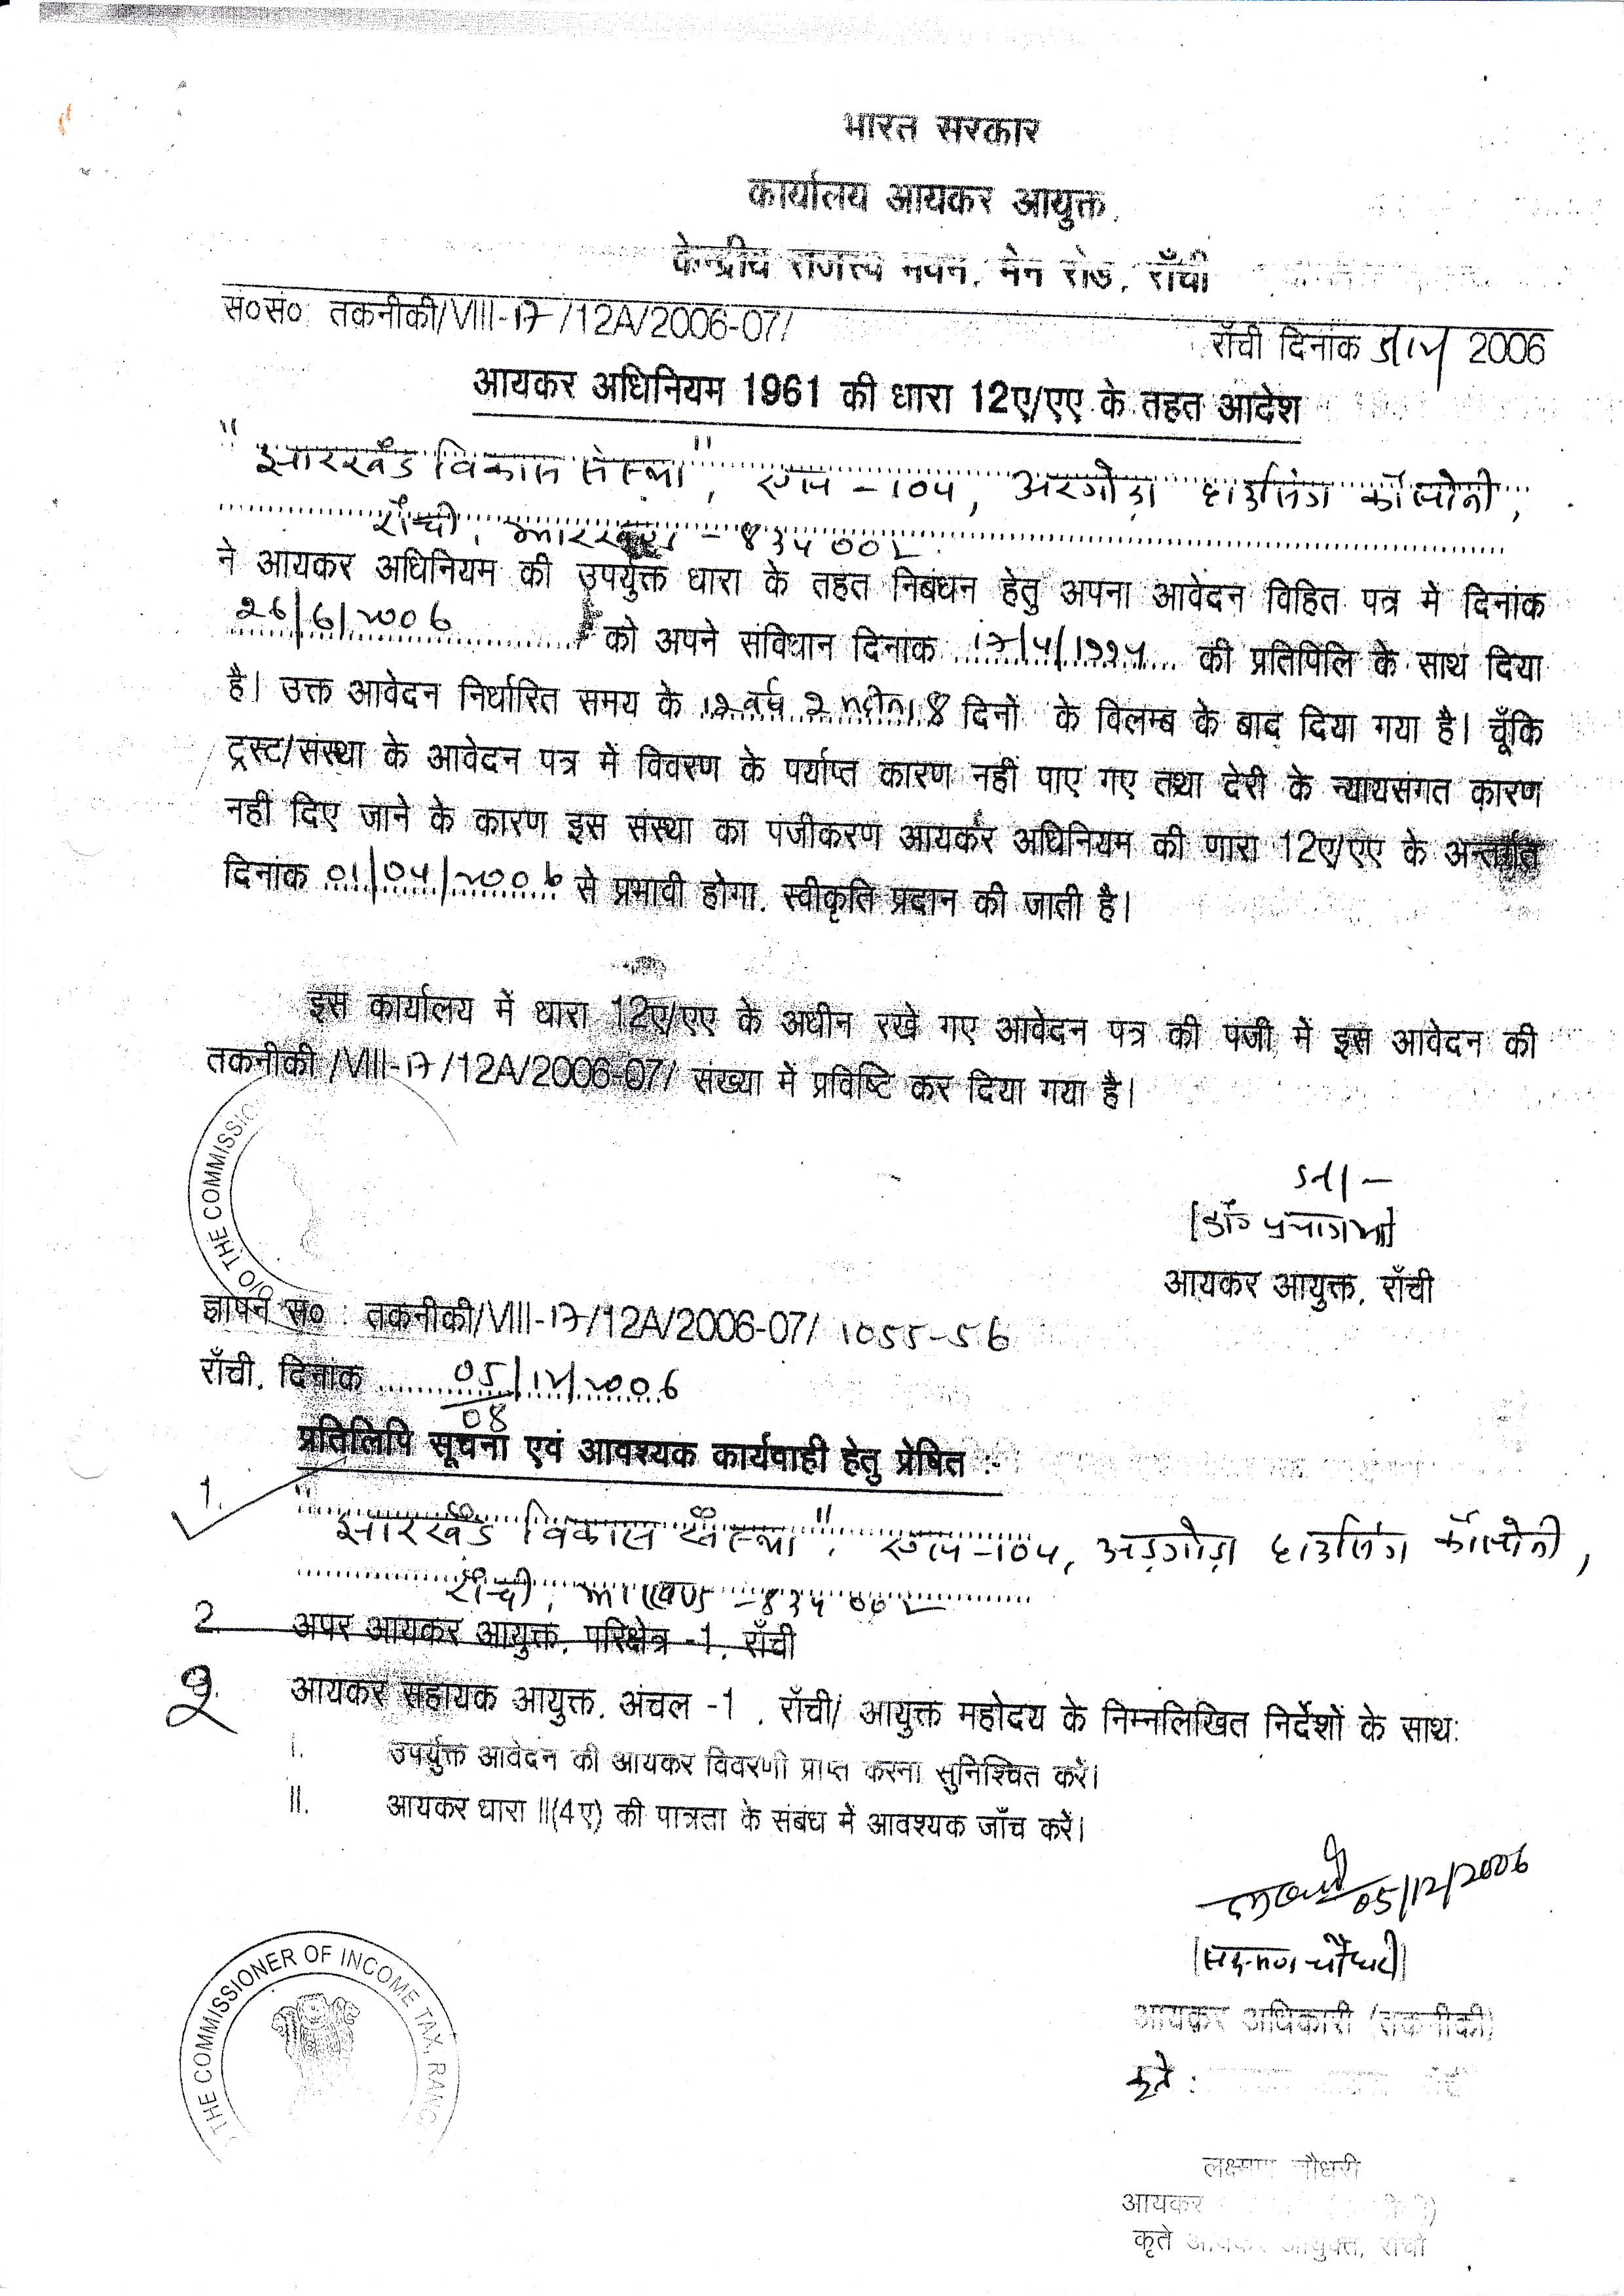 भारत सरकार
कार्यालय आयकर आयुक्त,
केन्द्रीय राजस्व भवन, मेन रोड, राँची
स०सं० तकनीकी/VIII-17/12A/2006-07/
राँची दिनांक 2006
आयकर अधिनियम 1961 की धारा 12ए/एए के तहत आदेश
"झारखँड विकास संस्था", एल-104, अरगोड़ा हाउसिंग कॉलोनी,
राँची, झारखण्ड - 834002
ने आयकर अधिनियम की उपर्युक्त धारा के तहत निबंधन हेतु अपना आवेदन विहित पत्र में दिनांक
26/6/2006 को अपने संविधान दिनांक 17/4/1994 की प्रतिपिलि के साथ दिया
है। उक्त आवेदन निर्धारित समय के 12 वर्ष 2 महीना 8 दिनों के विलम्ब के बाद दिया गया है। चूँकि
ट्रस्ट/संस्था के आवेदन पत्र में विवरण के पर्याप्त कारण नहीं पाए गए तथा देरी के न्यायसंगत कारण
नही दिए जाने के कारण इस संस्था का पंजीकरण आयकर अधिनियम की णारा 12ए/एए के अन्तर्गत
दिनांक 01/04/2006 से प्रभावी होगा. स्वीकृति प्रदान की जाती है।
इस कार्यालय में धारा 12ए/एए के अधीन रखे गए आवेदन पत्र की पंजी में इस आवेदन की
तकनीकी /VIII-17/12A/2006-07/ संख्या में प्रविष्टि कर दिया गया है।
O/O THE COMMISSIO
ह०/-
आयकर आयुक्त, राँची
ज्ञापन स० : तकनीकी/VIII-17/12A/2006-07/ 1055-56
राँची. दिनांक 05/12/2006
08
प्रतिलिपि सूचना एवं आवश्यक कार्यवाही हेतु प्रेषित :-
1. "झारखँड विकास संस्था", एल-104, अड़गोड़ा हाउसिंग कॉलोनी,
राँची, झारखण्ड - 834002
2. अपर आयकर आयुक्त, परिक्षेत्र -1, राँची
2. आयकर सहायक आयुक्त. अंचल -1 , राँची/ आयुक्त महोदय के निम्नलिखित निर्देशों के साथ:
I. उपर्युक्त आवेदन की आयकर विवरणी प्राप्त करना सुनिश्चित करें।
II. आयकर धारा II(4ए) की पात्रता के संबंध में आवश्यक जाँच करें।
05/12/2006
(लक्ष्मण चौधरी)
आयकर अधिकारी (तकनीकी)
कृते :
THE COMMISSIONER OF INCOME TAX, RANC
लक्ष्मण चौधरी
आयकर
कृते आयकर आयुक्त, राँची